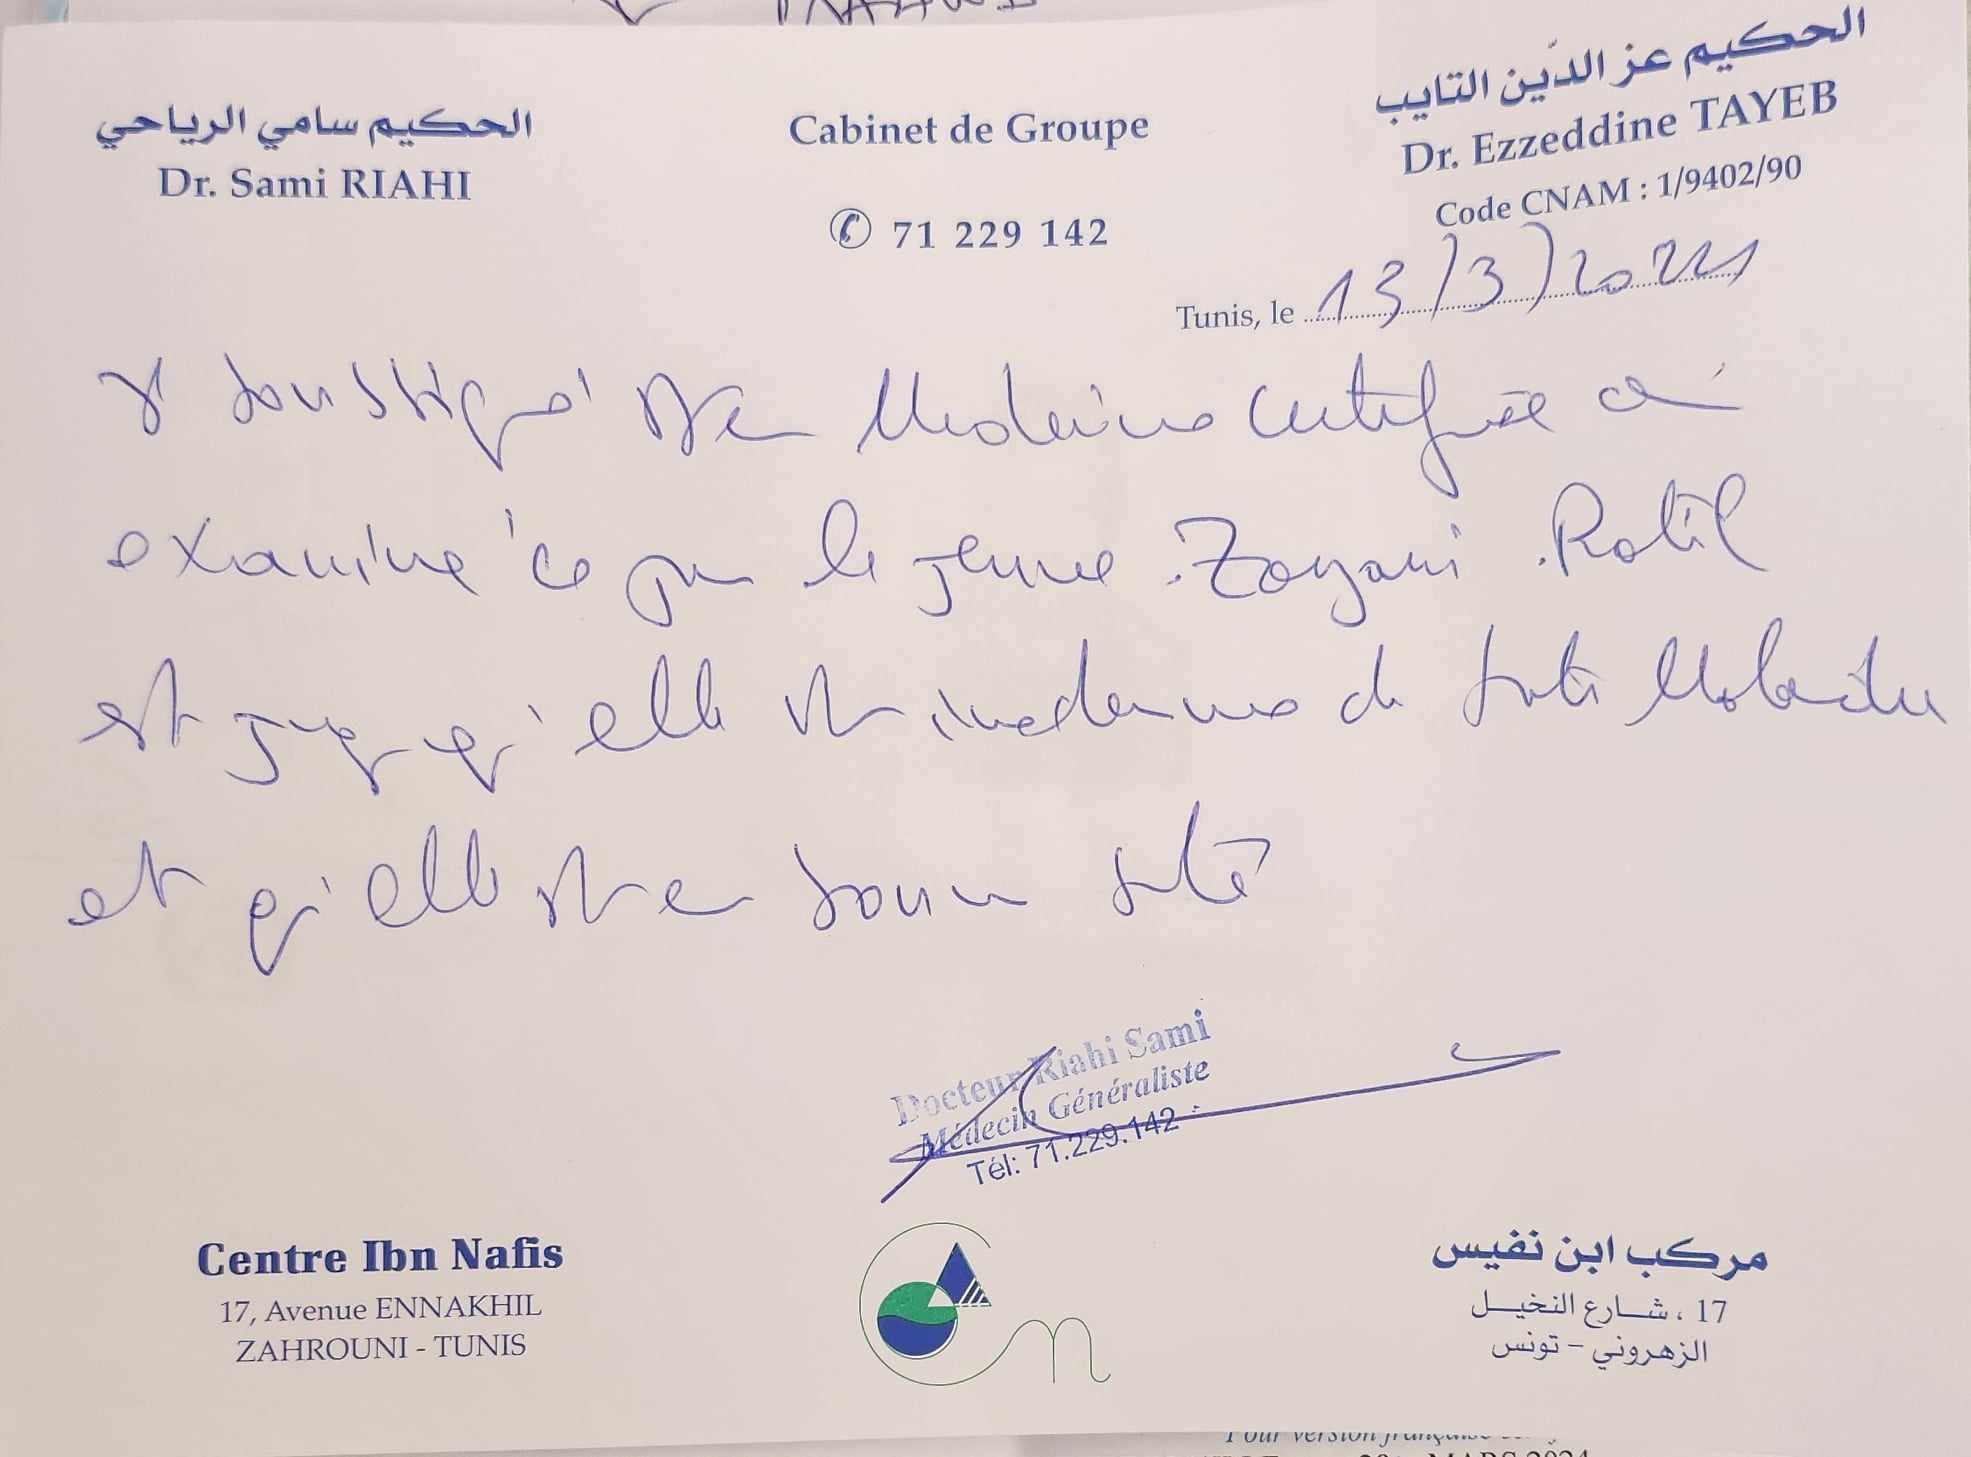 الحكيم سامي الرياحي
Dr. Sami RIAHI
Cabinet de Groupe
✆ 71 229 142
الحكيم عز الدّين التايب
Dr. Ezzeddine TAYEB
Code CNAM : 1/9402/90
Tunis, le 13/3/2024
Soussigné Dr en Medecine certifie
examiné ce jour le jeune Zayani
et juge qu'elle est indemne de toute Maladie
et qu'elle est en bonne santé
Docteur Riahi Sami
Médecin Généraliste
Tél: 71.229.142
Centre Ibn Nafis
17, Avenue ENNAKHIL
ZAHROUNI - TUNIS
مركب ابن نفيس
17 ، شارع النخيل
الزهروني - تونس
Pour version française
MARS 2024